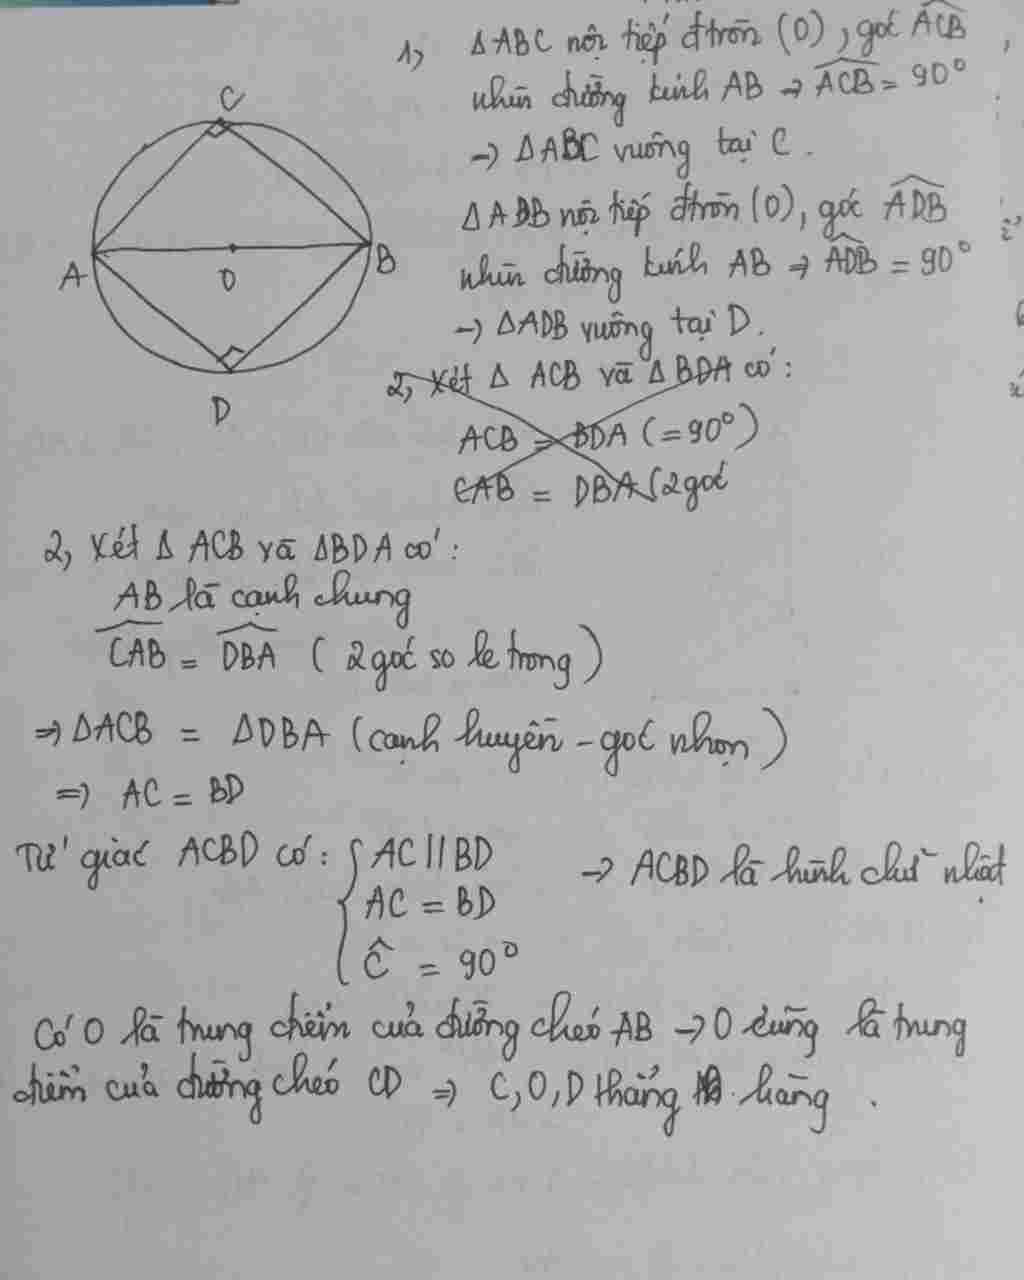 C
A
O
B
D
1, ΔABC nội tiếp đtròn (O), góc ACB
nhìn đường kính AB → ACB = 90°
→ ΔABC vuông tại C.
ΔADB nội tiếp đtròn (O), góc ADB
nhìn đường kính AB → ADB = 90°
→ ΔADB vuông tại D.
2, Xét Δ ACB và Δ BDA có:
ACB = BDA (= 90°)
CAB = DBA (2 góc
2, Xét Δ ACB và ΔBDA có:
AB là cạnh chung
CAB = DBA ( 2 góc so le trong )
⇒ ΔACB = ΔDBA (cạnh huyền - góc nhọn )
⇒ AC = BD
Tứ giác ACBD có: { AC || BD → ACBD là hình chữ nhật
AC = BD
Ĉ = 90°
Có O là trung điểm của đường chéo AB → O cũng là trung
điểm của đường chéo CD ⇒ C, O, D thẳng hàng.